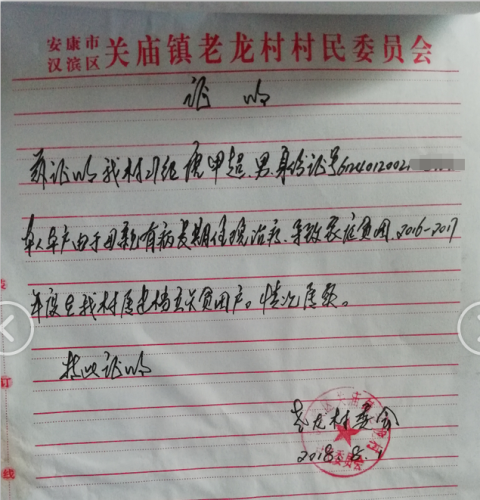 安康市
汉滨区 关庙镇老龙村村民委员会
证明
兹证明我村21组唐甲超、男、身份证号6124012002
本人年产由于母亲有病长期住院治疗、导致家庭贫困、2016-2017
年度是我村建档立卡贫困户。情况属实。
特此证明
老龙村委会
2018.8.1
订
线